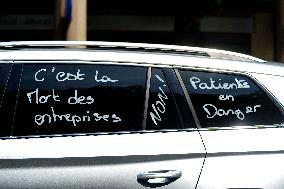 C'est la
Mort des
entreprises
NON!
Patients
en
Danger